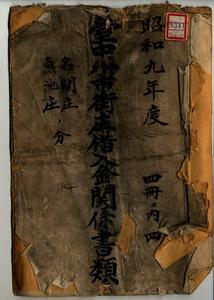 昭和九年度
四冊ノ内ノ四
臺中州市街庄借入金関係書類
名間庄
魚池庄
分